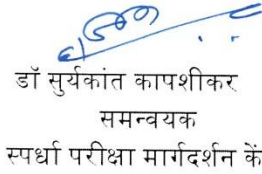 डॉ सुर्यकांत कापशीकर
समन्वयक
स्पर्धा परीक्षा मार्गदर्शन कें